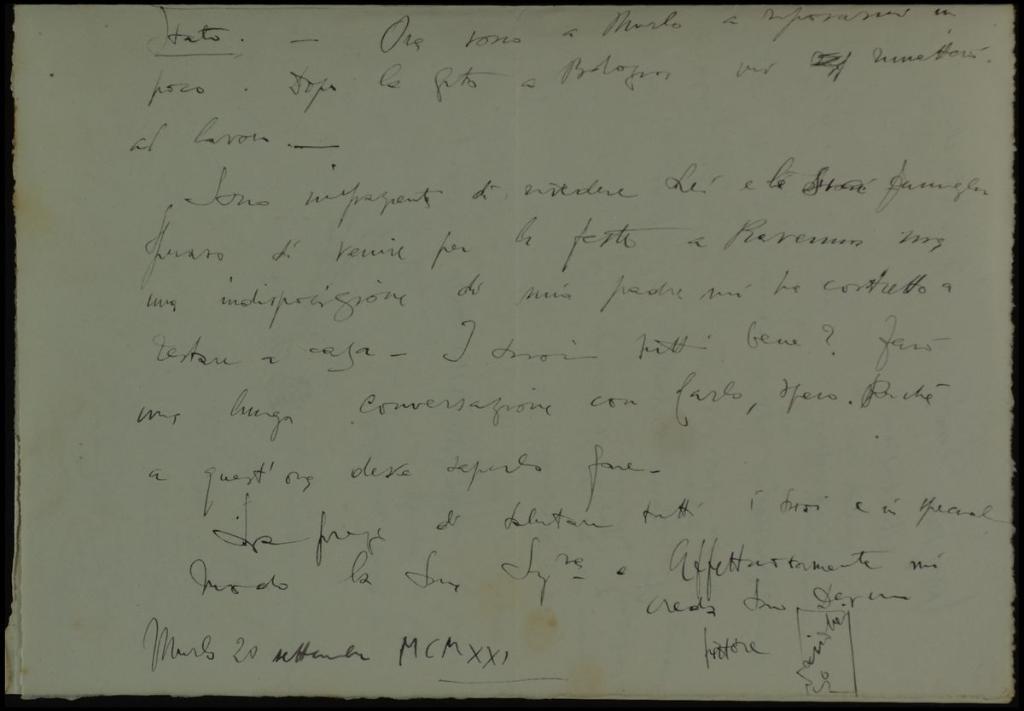 stato. — Ora sono a Murlo a riposarmi un
poco. Dopo la gita a Bologna mi rimetterò
al lavoro. —
Sono impaziente di rivedere Lei e la Sua famiglia
Speravo di venire per le feste a Ravenna ma
una indisposizione di mio padre mi ha costretto a
restare a casa — I suoi tutti bene? Farò
una lunga conversazione con Carlo, spero. Perché
a quest'ora deve saperlo fare —
La prego di salutare tutti i Suoi e in special
modo la Sua Sig.ra e Affettuosamente mi
creda Suo
pittore
Murlo 20 settembre MCMXXI